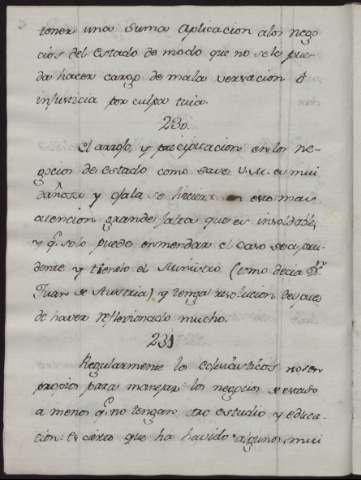 tener una suma aplicacion alos nego
cios del estado de modo que no se le pue
da hacer cargo de mala versacion ô
injusticia por culpa tuia.
230.
El arrojo, y precipitacion en los ne-
gocios de estado como save V.M. es mui
dañosa y ojala se hiciera en esto mas
atencion grande falta que es insoldable,
y q.e solo puede enmendar el caso sea pru
dente y tiento el Ministro (como decia D.n
Juan de Austria), y tenga resolucion despues
de haver reflexionado mucho.
231
Regularmente los eclesiasticos no son
propios para manejar los negocios de estado
a menos q.e no tengan otro estudio y educa-
cion: es cierto que ha havido algunos mui